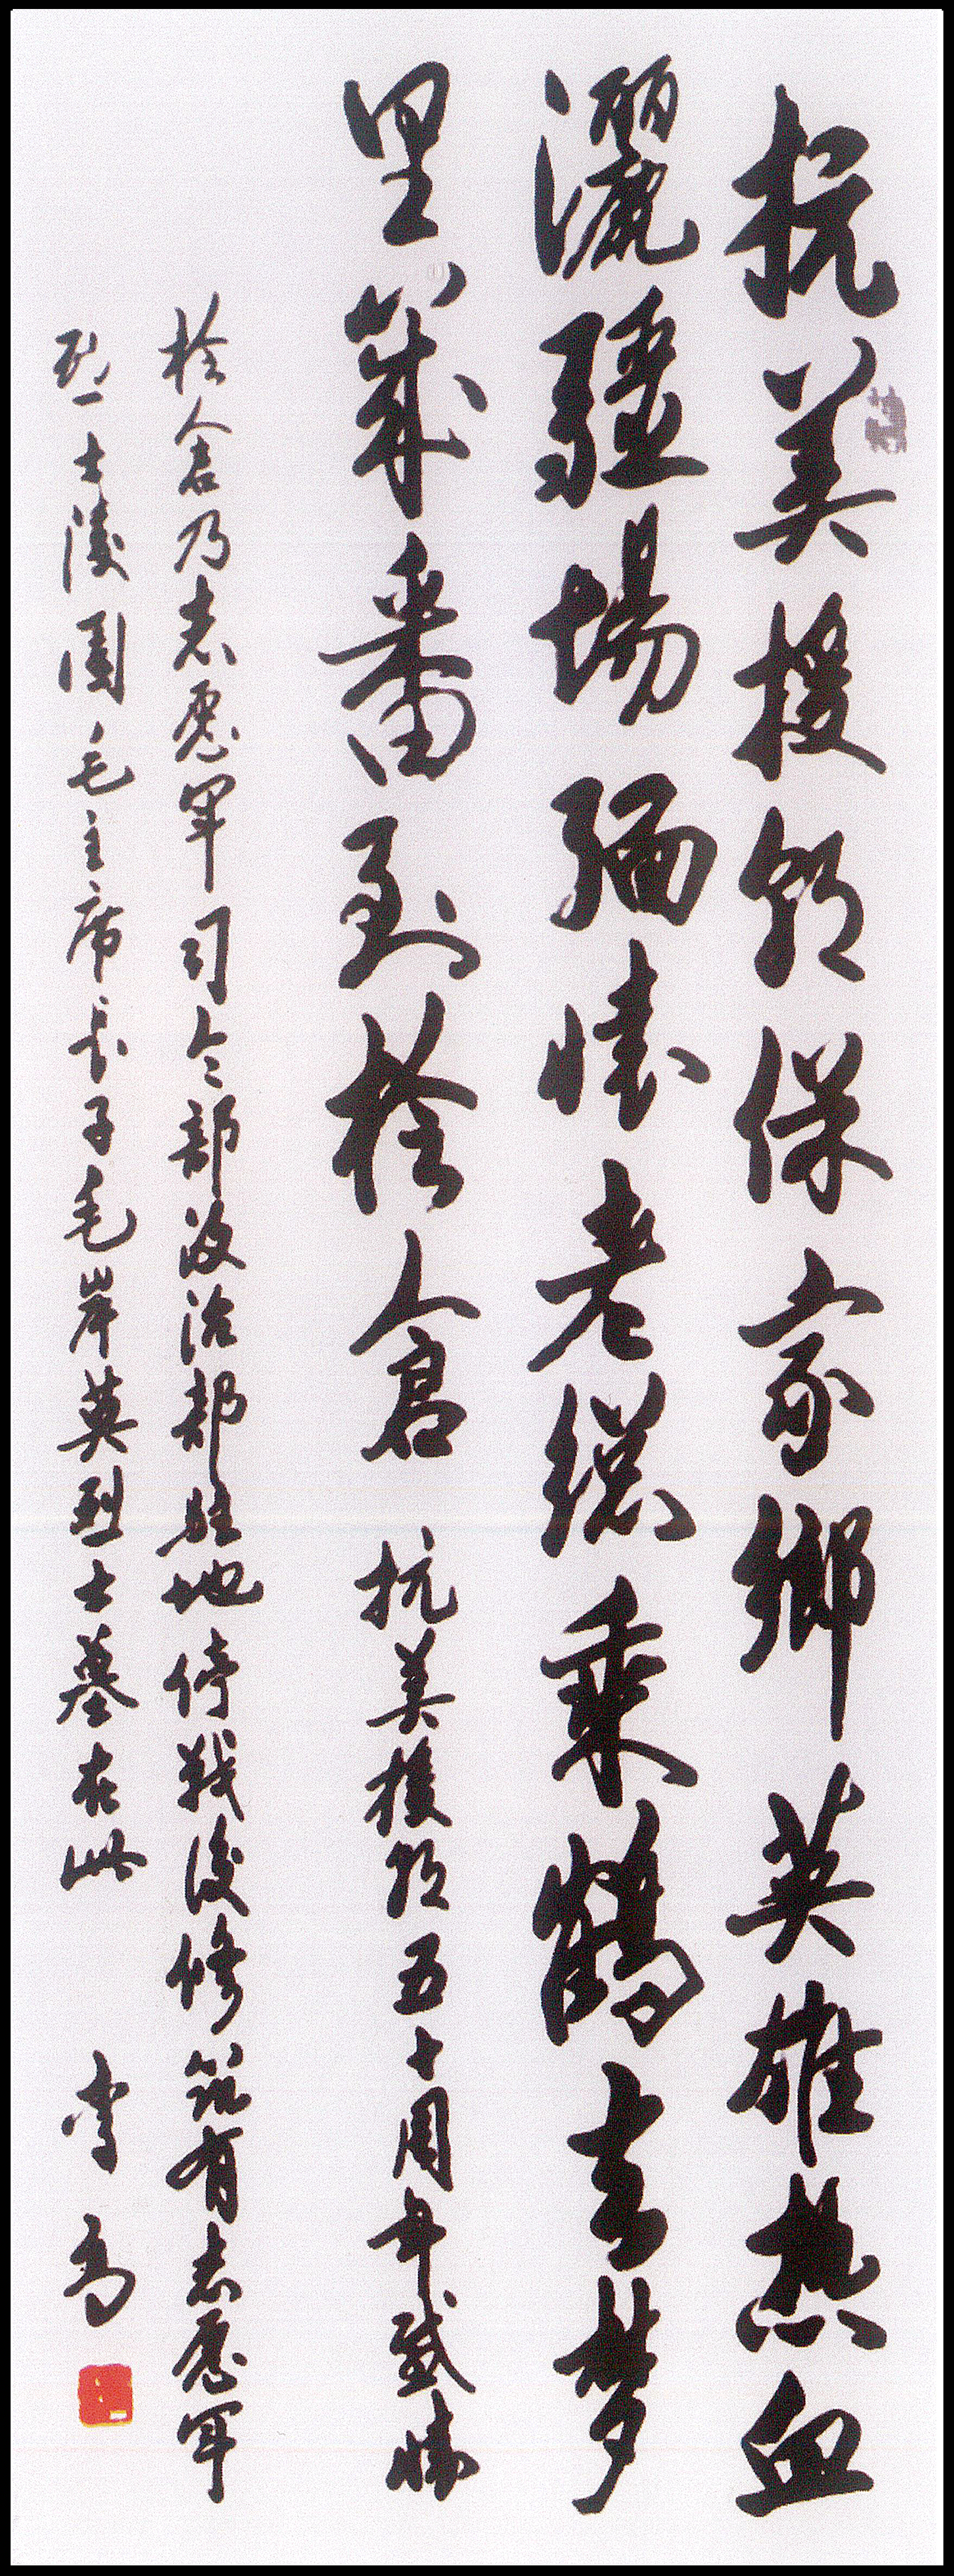 抗美援朝保家鄉英雄熱血
灑疆場緬懷老總乘鶴去夢
里幾番到桧倉 抗美援朝五十周年感懷
桧倉乃志愿軍司令部政治部駐地停戰後修筑有志愿軍
烈士陵園毛主席長子毛岸英烈士墓在此 李